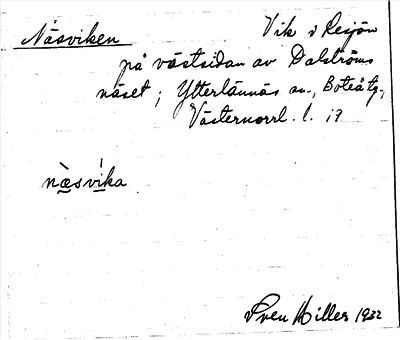 Näsviken Vik i Resjön
på västsidan av Dalströms
näset; Ytterlännäs sn., Boteå tg.,
Västernorrl. l. 19
næsvika
Sven Hiller 1932